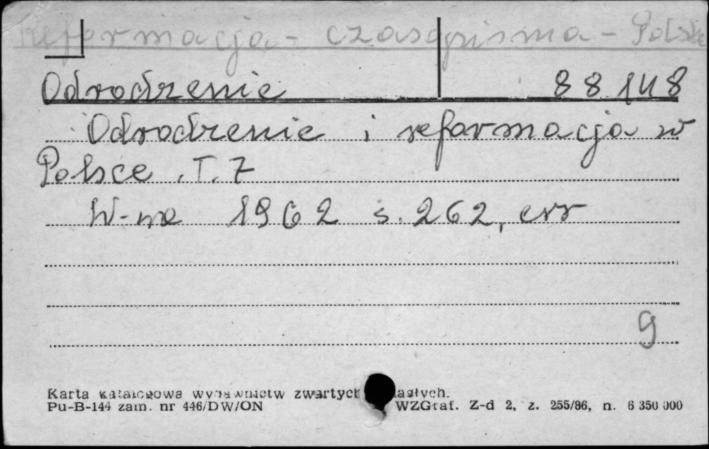 reformacja - czasopisma - Polska
Odrodzenie 88148
Odrodzenie i reformacja w
Polsce. T. 7
W-wa 1962 s. 262, err
9
Karta katalogowa wydawnictw zwartych
Pu-B-144 zam. nr 446/DW/ON WZGraf. Z-d 2, z. 255/86, n. 6 350 000